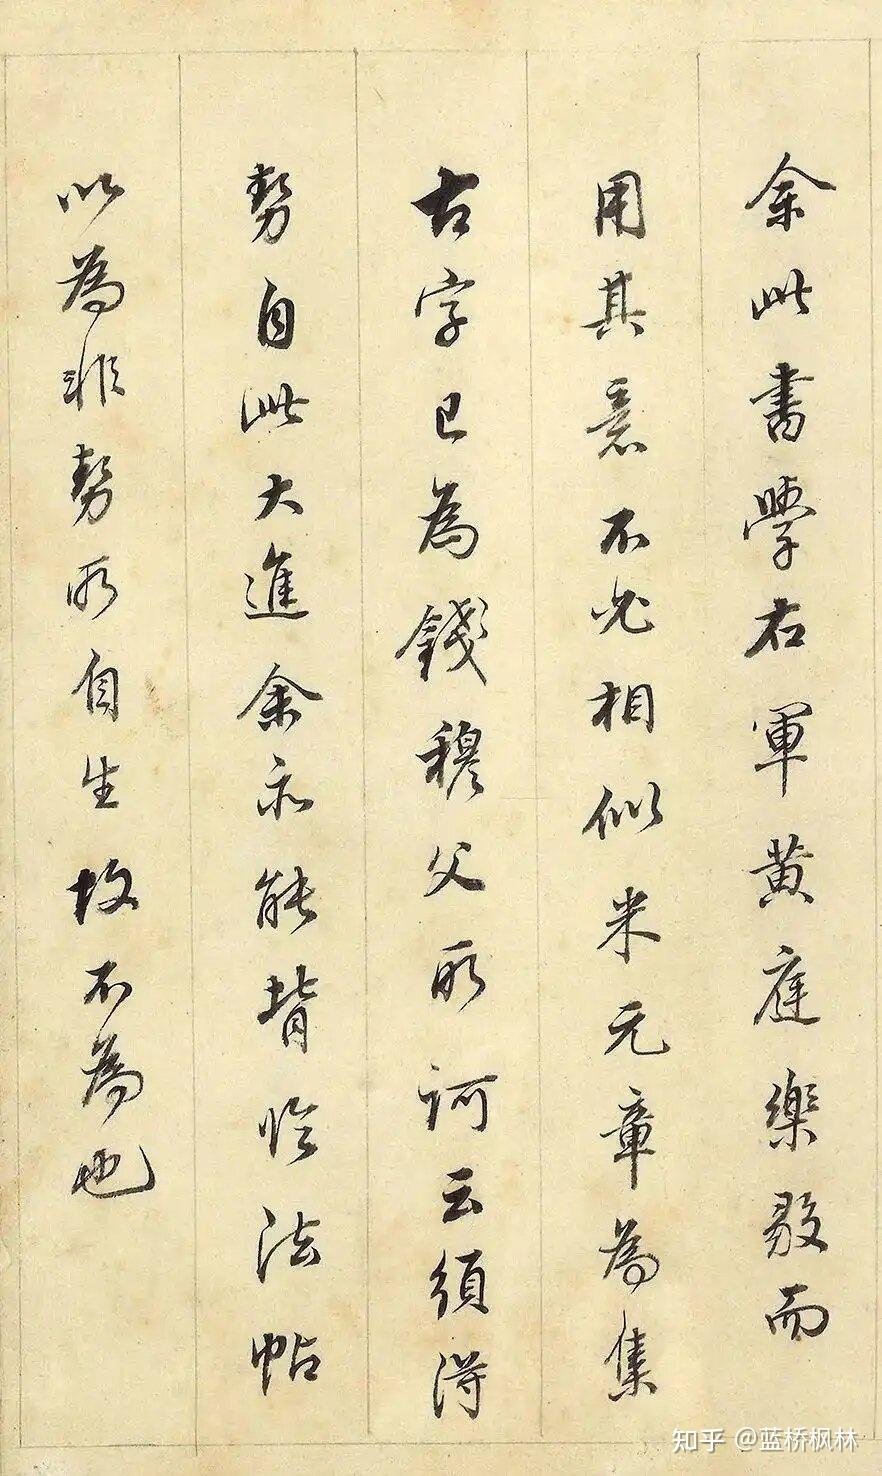 余此書學右軍黄庭樂毅而
用其意不必相似米元章為集
古字已為錢穆父所訶云須得
勢自此大進余亦能背臨法帖
以為非勢所自生故不為也
知乎 @蓝桥枫林